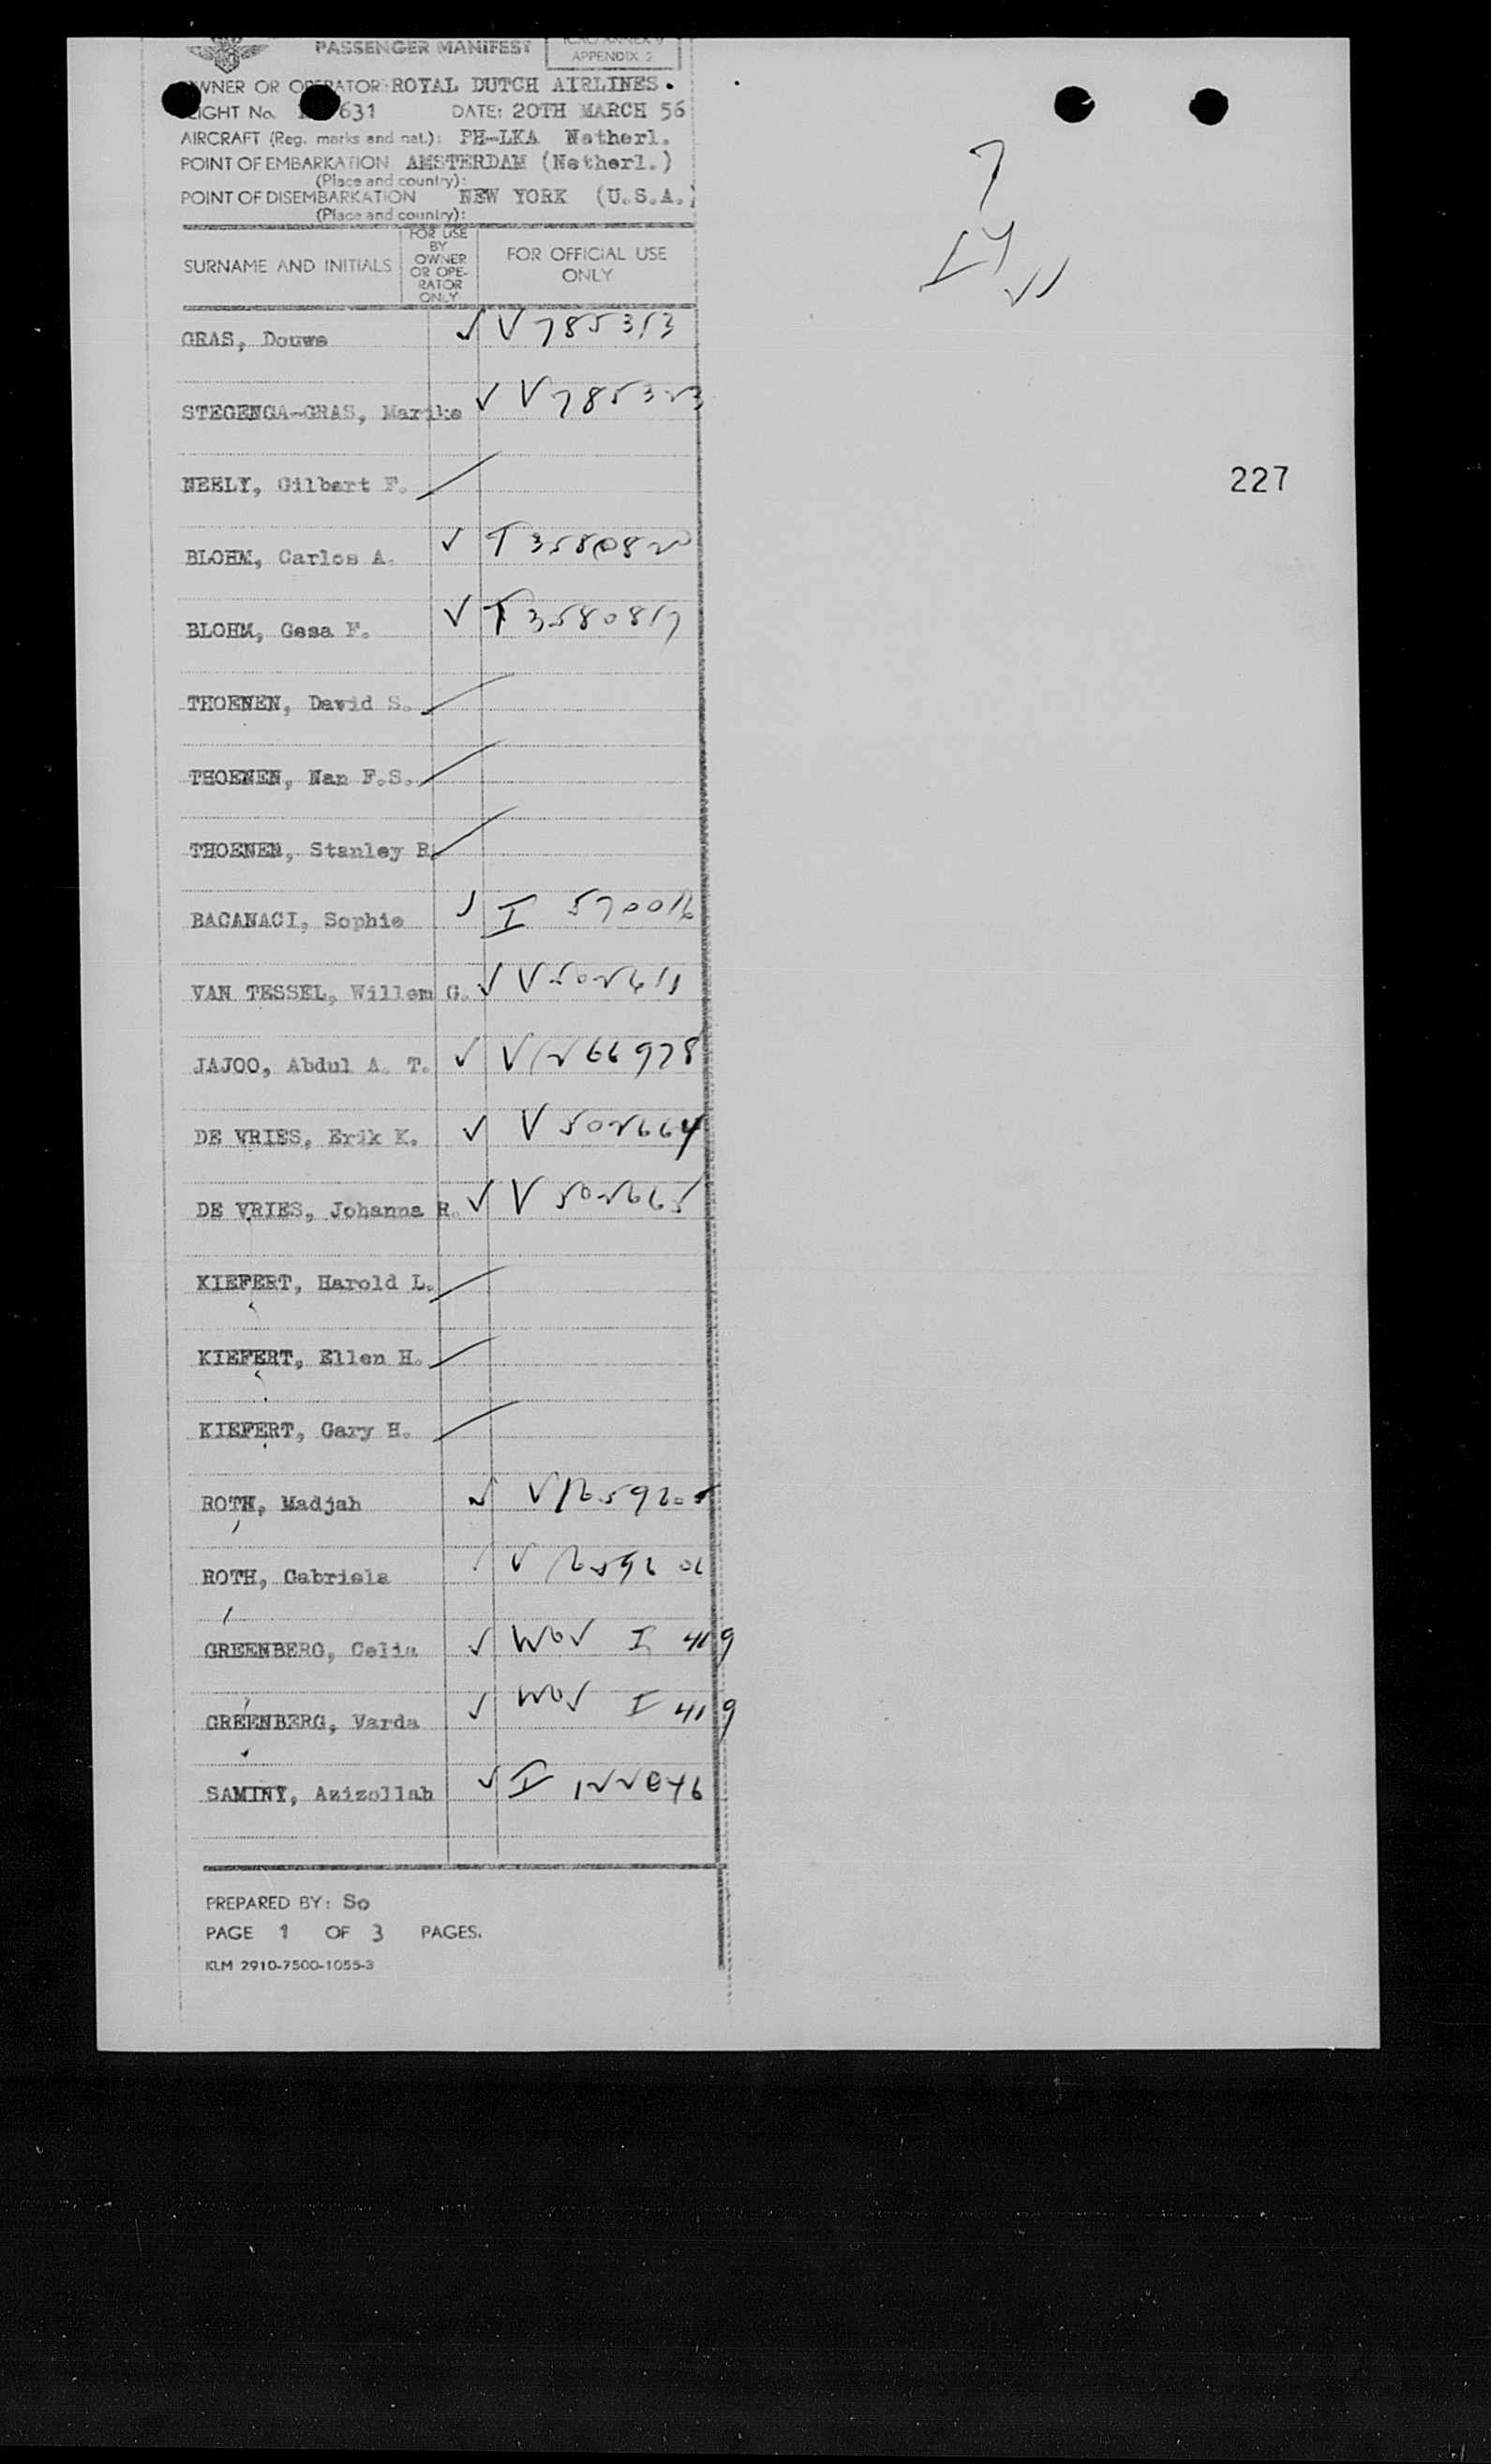 PASSENGER MANIFEST
APPENDIX 2
OWNER OR OPERATOR: ROYAL DUTCH AIRLINES.
FLIGHT No. 631 DATE: 20TH MARCH 56
AIRCRAFT (Reg. marks and nat.): PH-LKA Netherl.
POINT OF EMBARKATION AMSTERDAM (Netherl.)
(Place and country):
POINT OF DISEMBARKATION NEW YORK (U.S.A.)
(Place and country):
SURNAME AND INITIALS
FOR USE BY OWNER OR OPE-RATOR ONLY
FOR OFFICIAL USE ONLY
GRAS, Douwe V 785313
STEGENGA-GRAS, Marike V 785323
227
NEELY, Gilbert F.
BLOHM, Carlos A. T 3580820
BLOHM, Gesa F. T 3580817
THOENEN, David S.
THOENEN, Nan F.S.
THOENEN, Stanley R.
BACANACI, Sophie I 570016
VAN TESSEL, Willem G. V 502611
JAJOO, Abdul A. T. V 1266978
DE VRIES, Erik K. V 502664
DE VRIES, Johanna R. V 502665
KIEFERT, Harold L.
KIEFERT, Ellen H.
KIEFERT, Gary H.
ROTH, Madjah
ROTH, Gabriela
GREENBERG, Celia I 419
GREENBERG, Varda I 419
SAMINY, Azizollah I 122046
PREPARED BY: So
PAGE 1 OF 3 PAGES.
KLM 2910-7500-1055-3